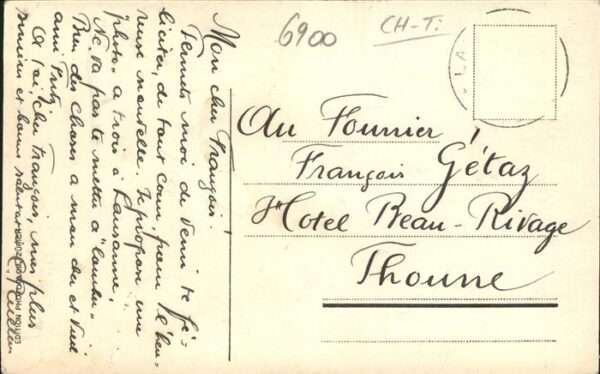 6900
CH-T:
Mon cher François!
Permets moi de venir te fé-
liciter, de tout cœur, pour l'heu-
reuse nouvelle. Je propose une
"photo" à trois à Lausanne.
Ne va pas te mettre à
Bien des choses à mon cher et vieil
ami Fritz
A toi, cher François, mes plus
sincères et bonnes salutat
Au Fourrier
François Gétaz
Hôtel Beau-Rivage
Thoune